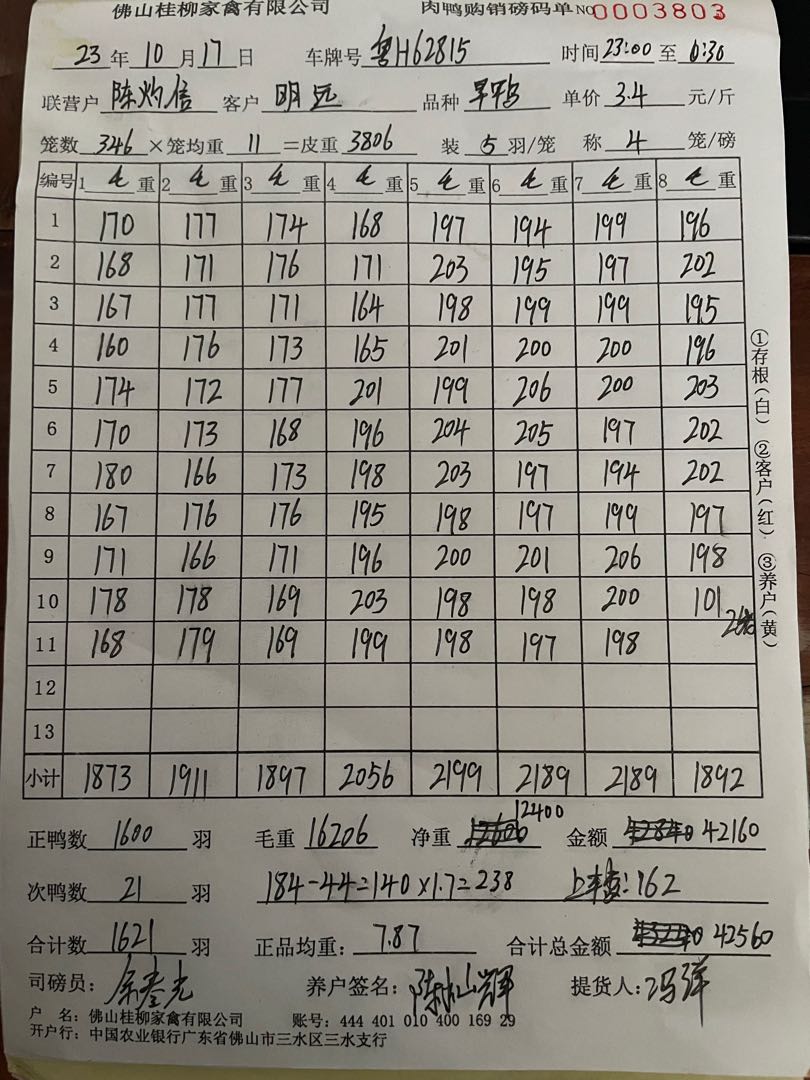 佛山桂柳家禽有限公司 肉鸭购销磅码单 No 0003803
23 年 10 月 17 日 车牌号 粤H62815 时间 23:00 至 0:30
联营户 陈灼信 客户 明远 品种 旱鸭 单价 3.4 元/斤
笼数 346 ×笼均重 11 =皮重 3806 装 5 羽/笼 称 4 笼/磅
编号 1 毛 重 2 毛 重 3 毛 重 4 毛 重 5 毛 重 6 毛 重 7 毛 重 8 毛 重
1 170 177 174 168 197 194 199 196
2 168 171 176 171 203 195 197 202
3 167 177 171 164 198 199 199 195
4 160 176 173 165 201 200 200 196
5 174 172 177 201 199 206 200 203
6 170 173 168 196 204 205 197 202
7 180 166 173 198 203 197 194 202
8 167 176 176 195 198 197 199 197
9 171 166 171 196 200 201 206 198
10 178 178 169 203 198 198 200 101
11 168 179 169 199 198 197 198
12
13
小计 1873 1911 1897 2056 2199 2189 2189 1892
正鸭数 1600 羽 毛重 16206 净重 12400 金额 42160
次鸭数 21 羽 184-44=140×1.7=238 上车:162
合计数 1621 羽 正品均重: 7.87 合计总金额 42560
司磅员: 养户签名: 提货人:
户 名: 佛山桂柳家禽有限公司 账号: 444 401 010 400 169 29
开户行: 中国农业银行广东省佛山市三水区三水支行
①存根(白) ②客户(红) ③养户(黄)